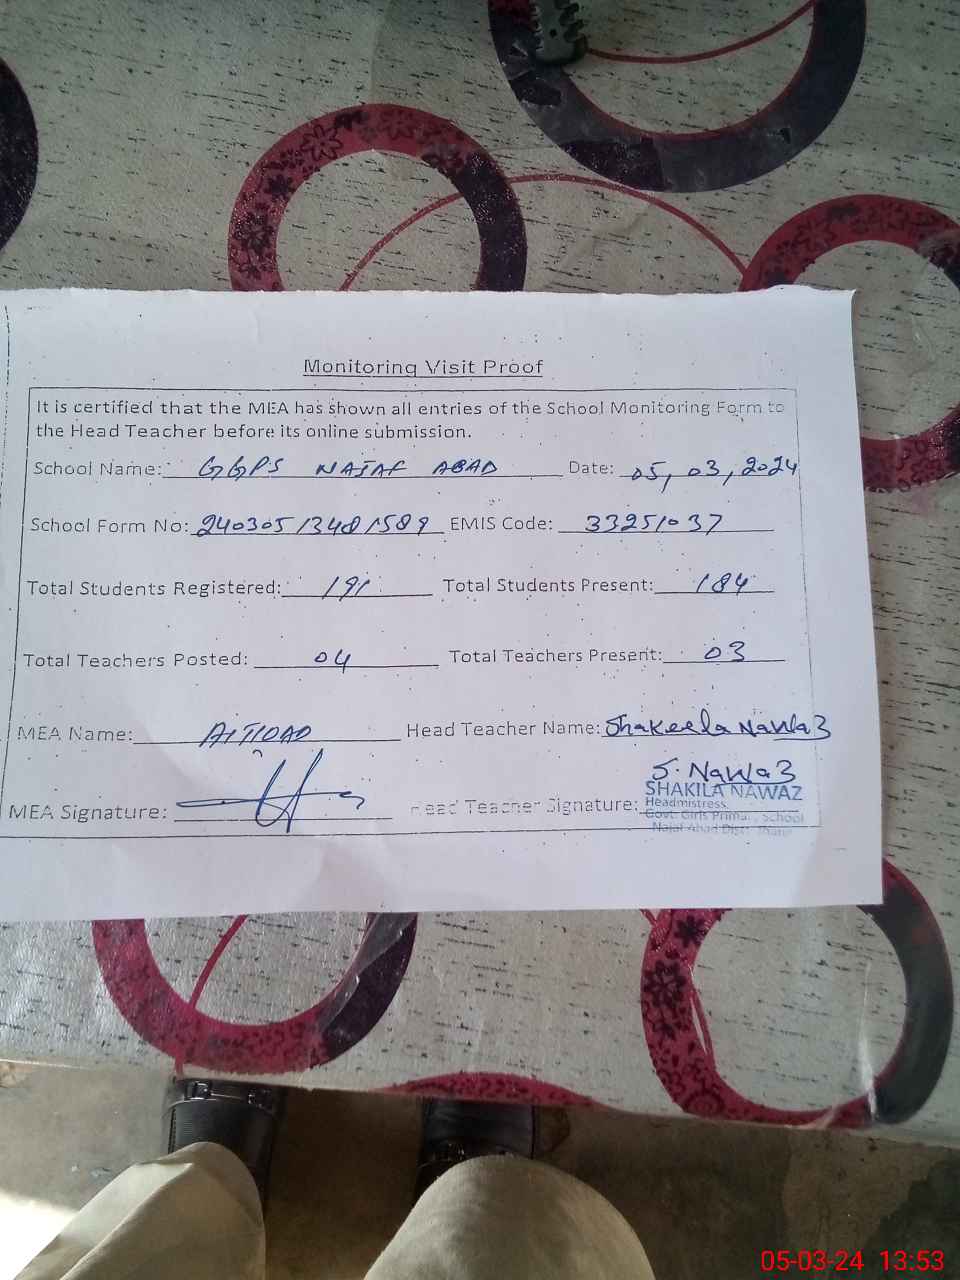 Monitoring Visit Proof
It is certified that the MEA has shown all entries of the School Monitoring Form to
the Head Teacher before its online submission.
School Name: GGPS NAJAF ABAD Date: 05, 03, 2024
School Form No: 24030513481589 EMIS Code: 33251037
Total Students Registered: 191 Total Students Present: 184
Total Teachers Posted: 04 Total Teachers Present: 03
MEA Name: Head Teacher Name: Shakeela Nawaz
S. Nawaz
MEA Signature: Head Teacher Signature:
SHAKILA NAWAZ
Headmistress
Govt. Girls Primary School
Najaf Abad Distt
05-03-24 13:53